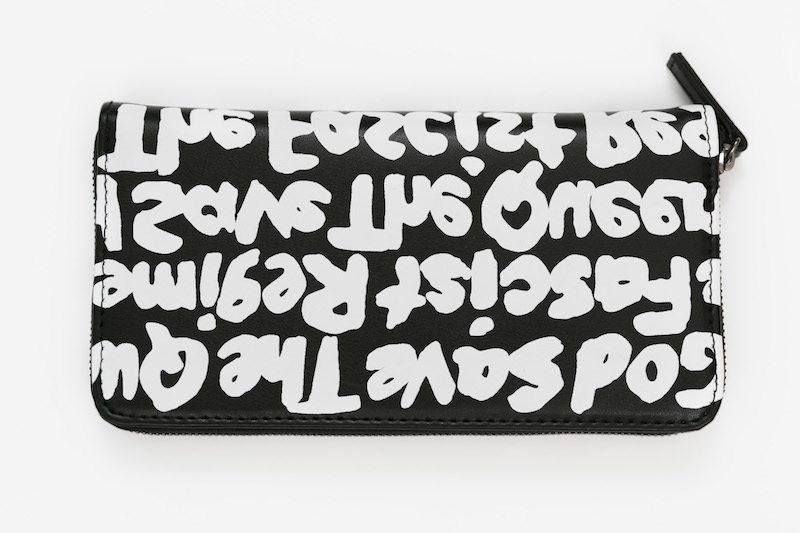 God Save The Qu
Fascist Regime
Save The Queen
The Fascist Re